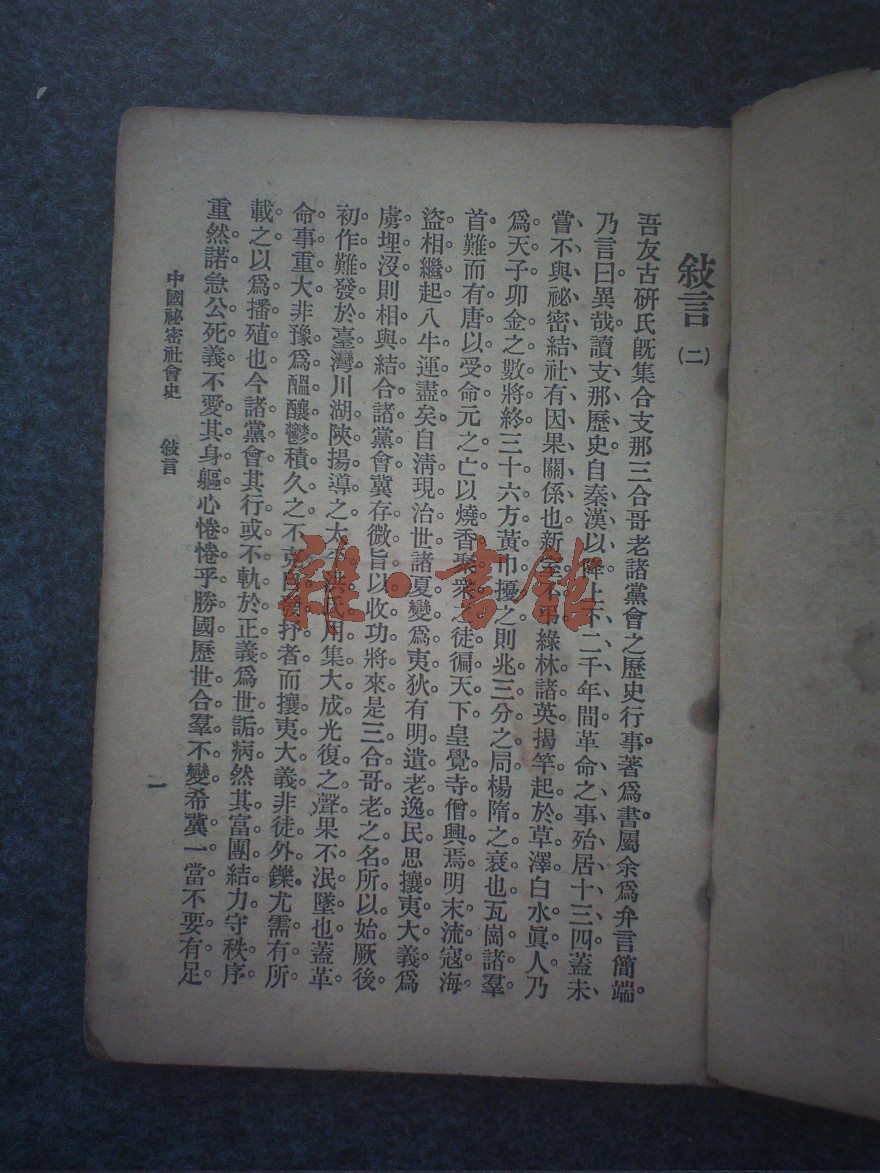 敍言
(二)
吾友古硏氏旣集合支那三合哥老諸黨會之歷史行事著爲書屬余爲弁言簡端。
乃言曰異哉讀支那歷史自秦漢以降上下二千年間革命之事殆居十三四蓋未
嘗不與祕密結社有因果關係也新室不弔綠林諸英揚竿起於草澤白水眞人乃
爲天子卯金之數將終三十六方黃巾擾之則兆三分之局楊隋之衰也瓦崗諸羣
首難而有唐以受命元之亡以燒香聚衆之徒徧天下皇覺寺僧興焉明末流寇海
盜相繼起八牛運盡矣自淸現治世諸夏變爲夷狄有明遺老逸民思攘夷大義爲
虜埋沒則相與結合諸黨會冀存微旨以收功將來是三合哥老之名所以始厥後
初作難發於臺灣川湖陝揚導之太平洪氏用集大成光復之聲果不泯墜也蓋革
命事重大非豫爲醞釀鬱積久之不克抒者而攘夷大義非徒外鑠尤需有所
載之以爲播殖也今諸黨會其行或不軌於正義爲世詬病然其富團結力守秩序
重然諾急公死義不愛其身軀心惓惓乎勝國歷世合羣不變希冀一當不要有足
中國祕密社會史 敍言
一
雜·書館